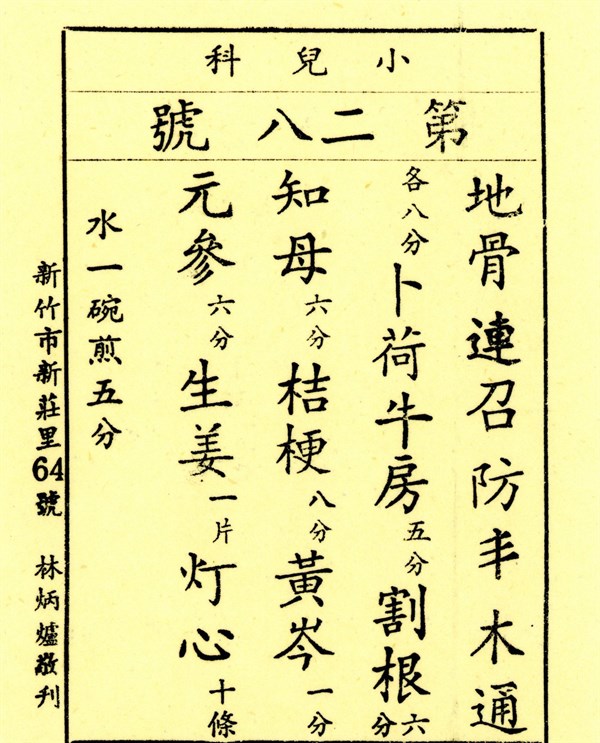 小兒科
第二八號
地骨連召防丰木通
各八分卜荷牛房五分割根六分
知母六分桔梗八分黃岑一分
元參六分生姜一片灯心十條
水一碗煎五分
新竹市新莊里64號　林炳爐敬刊